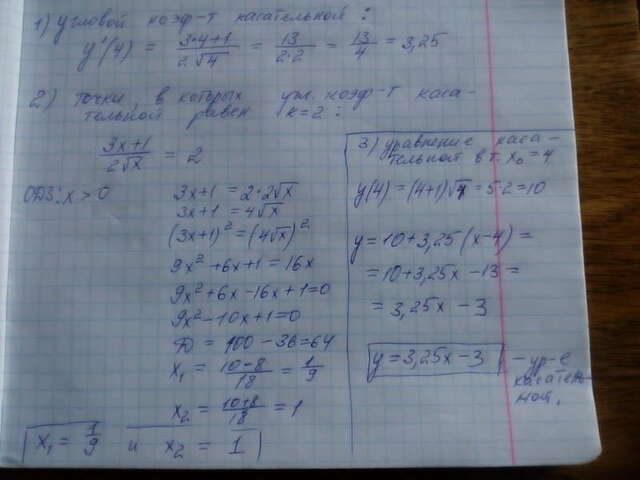 1) угловой коэф-т касательной:
y'(4) = (3·4+1)/(2√4) = 13/(2·2) = 13/4 = 3,25
2) точки, в которых угл. коэф-т каса-
тельной равен k=2:
(3x+1)/(2√x) = 2
ОДЗ: x > 0
3x+1 = 2·2√x
3x+1 = 4√x
(3x+1)² = (4√x)²
9x²+6x+1=16x
9x²+6x-16x+1=0
9x²-10x+1=0
D = 100-36=64
x₁ = (10-8)/18 = 1/9
x₂ = (10+8)/18 = 1
x₁ = 1/9 и x₂ = 1
3) уравнение каса-
тельной в т. x₀ = 4
y(4) = (4+1)√4 = 5·2=10
y=10+3,25(x-4) =
=10+3,25x-13 =
= 3,25x-3
y=3,25x-3 - ур-е
касатель-
ной.